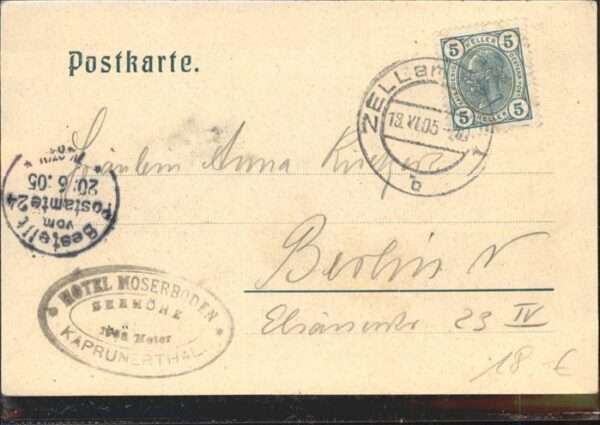 Postkarte.
5 HELLER 5
5 HELLER 5
ZELL am
19.VI.05
b
Bestellt
vom
Postamte 24
20.6.05
Fräulein Anna
Berlin N
23 IV
HOTEL MOSERBODEN
SEEHÖHE
Meter
KAPRUNERTHAL.
18 €